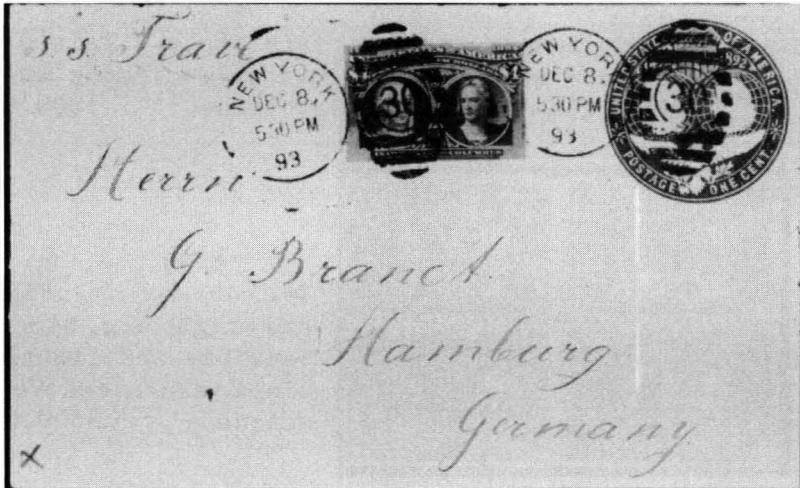 s.s. Trave
NEW YORK
DEC 8.
5 30 PM
93
30
COLUMBUS
NEW YORK
DEC 8.
5 30 PM
93
UNITED STATES OF AMERICA.
1892
30
POSTAGE ONE CENT.
Herrn
G. Brandt.
Hamburg
Germany.
X